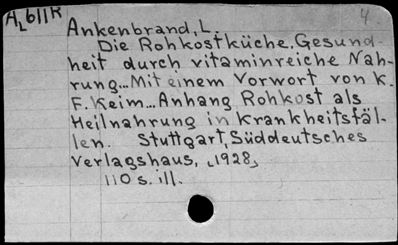 A2611R
4
Ankenbrand, L.
Die Rohkostküche. Gesund-
heit durch vitaminreiche Nah-
rung... Mit einem Vorwort von K.
F. Keim... Anhang Rohkost als
Heilnahrung in Krankheitsfäl-
len. Stuttgart, Süddeutsches
Verlagshaus, [1928]
110 s. ill.